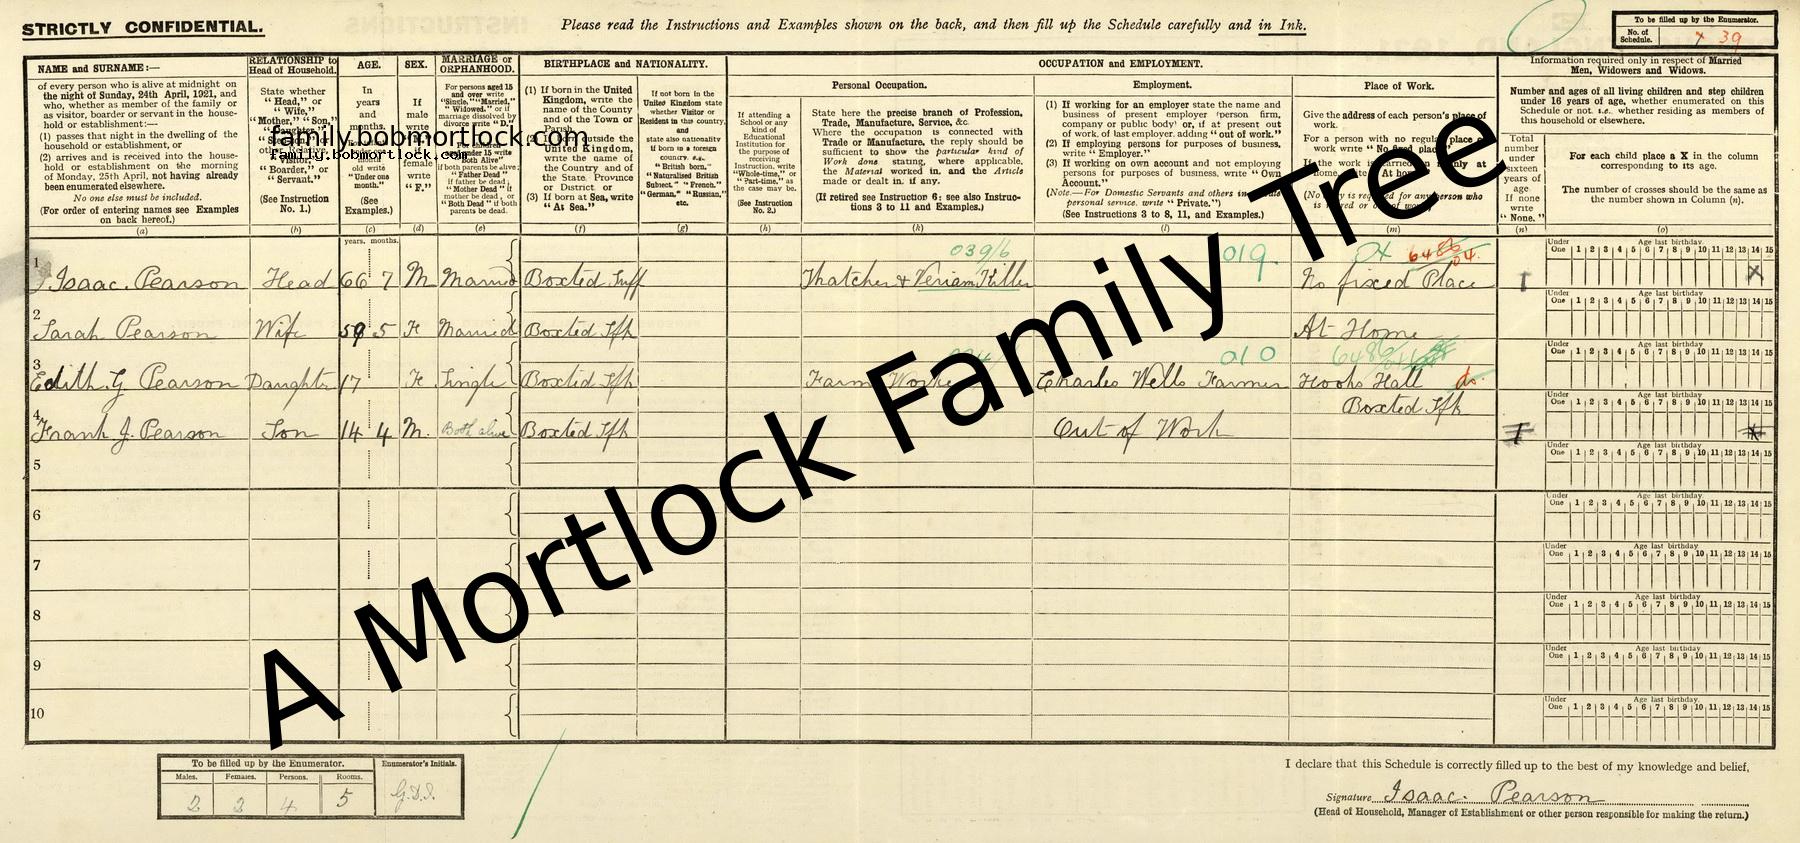 STRICTLY CONFIDENTIAL.
Please read the Instructions and Examples shown on the back, and then fill up the Schedule carefully and in Ink.
To be filled up by the Enumerator.
No. of Schedule. 39
NAME and SURNAME:—
of every person who is alive at midnight on
the night of Sunday, 24th April, 1921, and
who, whether as member of the family or
as visitor, boarder or servant in the house-
hold or establishment:—
(1) passes that night in the dwelling of the
household or establishment, or
(2) arrives and is received into the house-
hold or establishment on the morning
of Monday, 25th April, not having already
been enumerated elsewhere.
No one else must be included.
(For order of entering names see Examples
on back hereof.)
(a)
RELATIONSHIP to
Head of Household.
State whether
"Head," or
"Wife,"
"Mother," "Son,"
Visitor,
"Boarder," or
"Servant."
(See Instruction
No. 1.)
(b)
AGE.
In
years
and
months.
old write
"Under one
month."
(See
Examples.)
(c)
SEX.
If
male
write
female
write
"F."
(d)
MARRIAGE or
ORPHANHOOD.
For persons aged 15
and over write
"Single," "Married,"
"Widowed," or if
marriage dissolved by
divorce write "D."
"Both Alive"
if "Father Dead" if
father be dead,
"Mother Dead" if
mother be dead, or
"Both Dead" if both
parents be dead.
(e)
BIRTHPLACE and NATIONALITY.
(1) If born in the United
Kingdom, write the
name of the County
and of the Town or
Parish.
outside the
United Kingdom,
write the name of
the Country and of
the State, Province
or District, or
(3) If born at Sea, write
"At Sea."
(f)
If not born in the
United Kingdom state
whether Visitor or
Resident in this country,
and
state also nationality
if born in a foreign
country. e.g.,
"British born,"
"Naturalised British
Subject," "French,"
"German," "Russian,"
etc.
(g)
OCCUPATION and EMPLOYMENT.
If attending a
School or any
kind of
Educational
Institution for
the purpose of
receiving
Instruction, write
"Whole-time," or
"Part-time," as
the case may be.
(See Instruction
No. 2.)
(h)
Personal Occupation.
State here the precise branch of Profession,
Trade, Manufacture, Service, &c.
Where the occupation is connected with
Trade or Manufacture, the reply should be
sufficient to show the particular kind of
Work done stating, where applicable,
the Material worked in, and the Article
made or dealt in, if any.
(If retired see Instruction 6; see also Instruc-
tions 3 to 11 and Examples.)
(k)
Employment.
(1) If working for an employer state the name and
business of present employer (person, firm,
company or public body) or, if at present out
of work, of last employer, adding "out of work."
(2) If employing persons for purposes of business,
write "Employer."
(3) If working on own account and not employing
persons for purposes of business, write "Own
Account."
(Note.—For Domestic Servants and others in
personal service, write "Private.")
(See Instructions 3 to 8, 11, and Examples.)
(l)
Place of Work.
Give the address of each person's place of
work.
For a person with no regular place of
work write "No fixed place."
(m)
Information required only in respect of Married
Men, Widowers and Widows.
Number and ages of all living children and step children
under 16 years of age, whether enumerated on this
Schedule or not, i.e. whether residing as members of
this household or elsewhere.
Total
number
under
sixteen
years of
age.
If none
write
"None."
(n)
For each child place a X in the column
corresponding to its age.
The number of crosses should be the same as
the number shown in Column (n).
(o)
family.bobmortlock.com
family.bobmortlock.com
years. months.
Under One Age last birthday. 1 2 3 4 5 6 7 8 9 10 11 12 13 14 15
039/6 019 OX
1 Isaac. Pearson Head 66 7 M Married Boxted Suff Thatcher & Vermin Killer No fixed Place 1 X
2 Sarah Pearson Wife 59 5 F Married Boxted Sfk At Home
010
3 Edith. G. Pearson Daughter 17 F Single Boxted Sfk Farm Worker Charles Wells Farmer Hooks Hall do.
Boxted Sfk
4 Frank J. Pearson Son 14 4 M. Both alive Boxted Sfk Out of Work 1 X
5
6
7
8
9
10
A Mortlock Family Tree
To be filled up by the Enumerator.
Males. Females. Persons. Rooms.
2 2 4 5
Enumerator's Initials.
I declare that this Schedule is correctly filled up to the best of my knowledge and belief.
Signature Isaac. Pearson
(Head of Household, Manager of Establishment or other person responsible for making the return.)